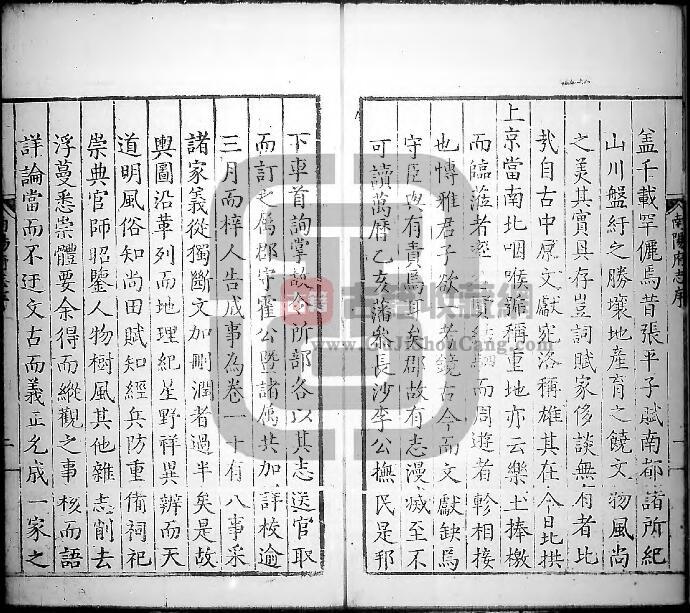 蓋千載罕儷焉昔張平子賦南都諸所紀
山川盤紆之勝壤地產育之饒文物風尚
之美其實具存豈詞賦家侈談無有者比
哉自古中原文獻宛洛稱雄其在今日北拱
上京當南北咽喉號稱重地亦云樂土捧檄
而臨蒞者 賢 而周遊者軫相接
也博雅君子欲 鏡古今而文獻缺焉
守臣與有責焉耳矣郡故有志漫滅至不
可讀萬曆乙亥藩參長沙李公撫民是邦
下車首詢掌故令所部各以其志送官取
而訂之屬郡守霍公暨諸屬共加詳校逾
三月而梓人告成事為卷一十有八事采
諸家義從獨斷文加刪潤者過半矣是故
輿圖沿革列而地理紀星野祥異辨而天
道明風俗知尚田賦知經兵防重俻祠祀
崇典官師昭鑒人物樹風其他雜志削去
浮蔓悉崇體要余得而縱觀之事核而語
詳論當而不迂文古而義正允成一家之
南陽府志序
二
古籍收藏網
www.GuJiShouCang.com